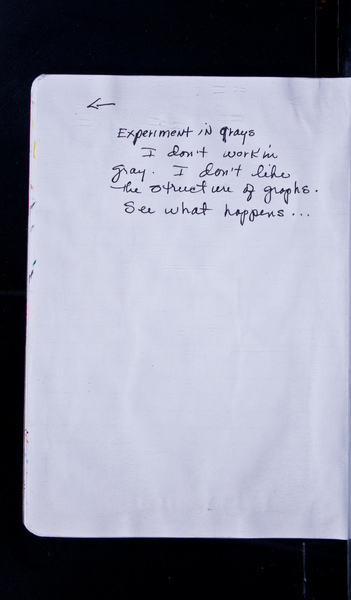 ←
Experiment in grays
I don't work in
gray. I don't like
the structure of graphs.
See what happens...